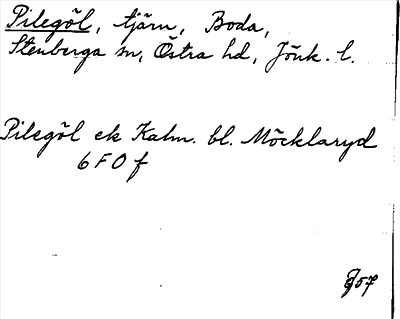 Pilegöl, tjärn, Boda,
Stenberga sn, Östra hd, Jönk. l.
Pilegöl ek Kalm. bl. Möcklaryd
6 F 0 f
57